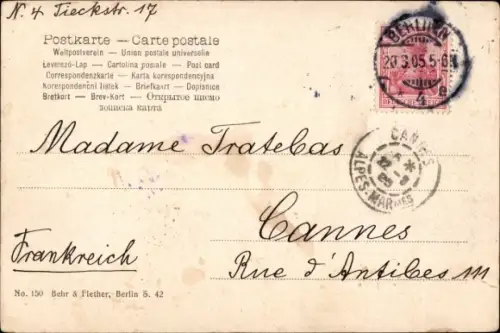 N. 4 Tieckstr. 17
Postkarte — Carte postale
Weltpostverein — Union postale universelle
Levelező-Lap — Cartolina postale — Post card
Correspondenzkarte — Karta korrespondencyjna
Korespondenční listek — Briefkaart — Dopisnice
Brefkort — Brev-Kort — Открытое письмо
дописна карта
BERLIN N
20.3.05.5-6N
4
Madame Tratebas
CANNES
ALPES-MARMES
Cannes
Frankreich
Rue d'Antibes 111
No. 150 Behr & Plether, Berlin S. 42